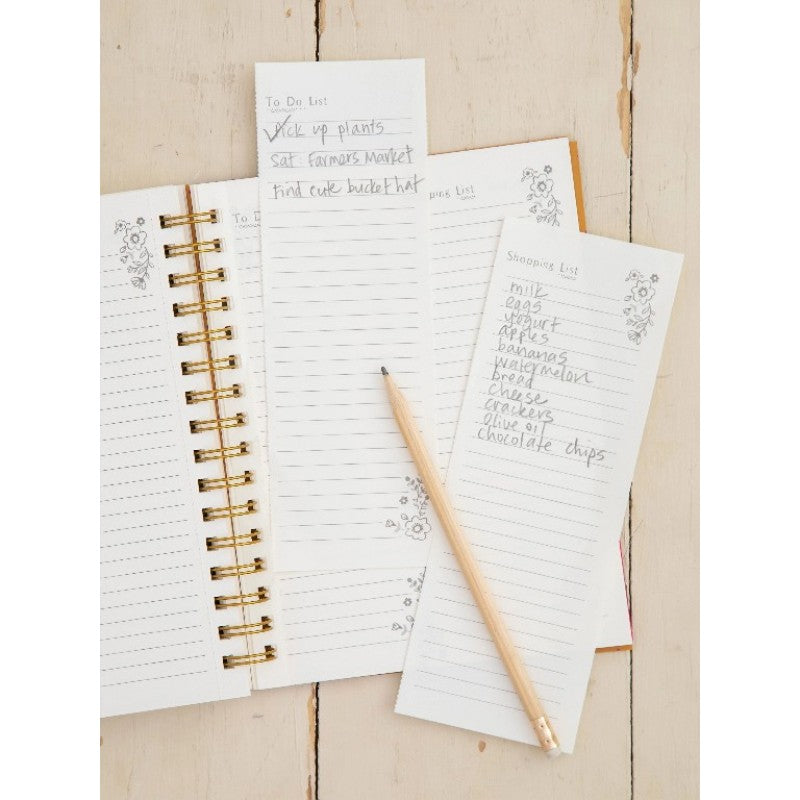 To Do List
Pick up plants
Sat: Farmers Market
Find cute bucket hat
To D
pping List
Shopping List
milk
eggs
yogurt
apples
bananas
watermelon
bread
cheese
crackers
Olive oil
chocolate chips